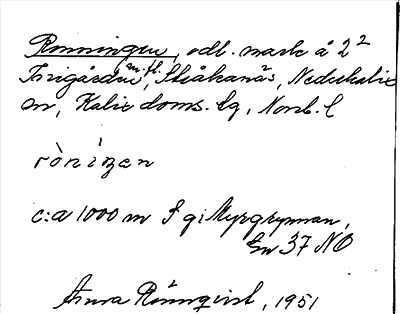 Rönningen, odl. mark å 2²
m. fl. Stråkanäs, Nederkalix
sn, Kalix doms. lg, Norrb. l
ròníŋen
c:a 1000 m S g; Myrgrynnan,
Sn 37 NO
Anna Rönnqvist, 1951